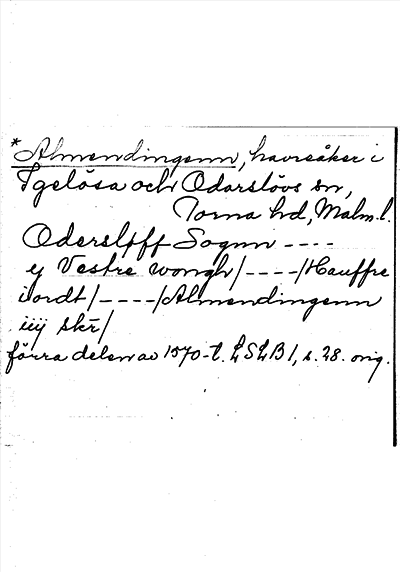 *Almendingenn, havreåker i
Igelösa och Odarslövs sn,
Torna hd, Malm. l.
Odersløff Sognn ----
y Vestre wongh/----/Hauffre
iordt/----/Almendingenn
iiij skr/
förra delen av 1570-t. LSLB 1, s. 28. orig.